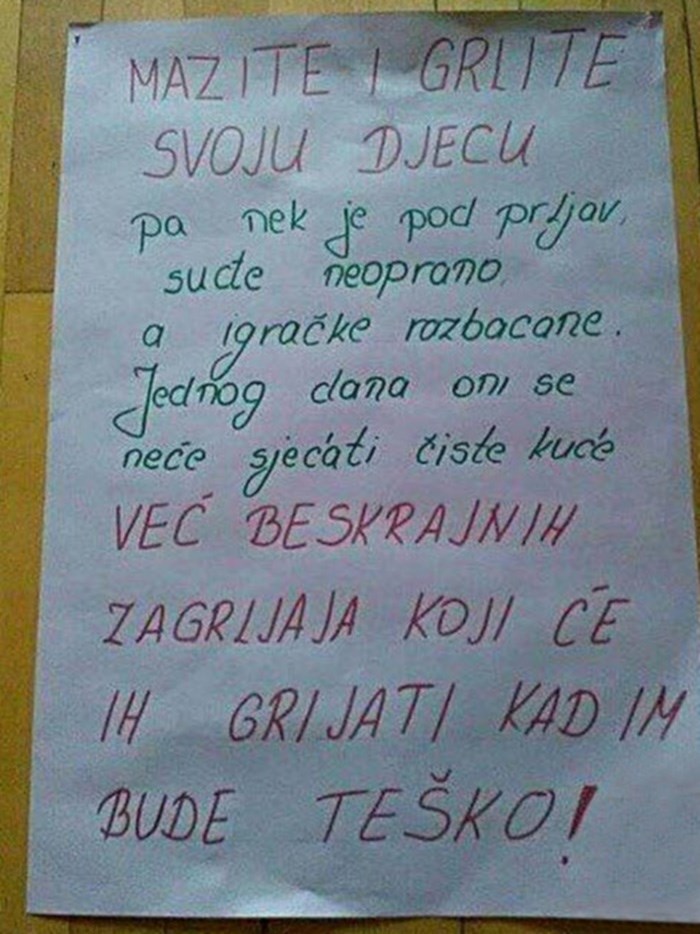 MAZITE I GRLITE
SVOJU DJECU
pa nek je pod prljav,
suđe neoprano,
a igračke rozbacane.
Jednog dana oni se
neće sjećati čiste kuće
VEĆ BESKRAJNIH
ZAGRLJAJA KOJI ĆE
IH GRIJATI KAD IM
BUDE TEŠKO!